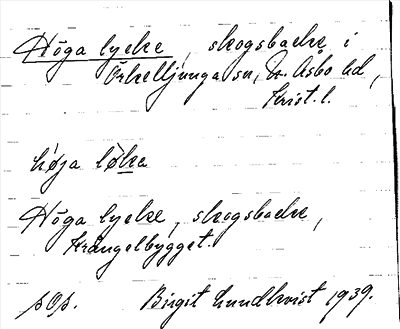 Höga lycke, skogsbacke i
Örkelljunga sn, N. Åsbo hd,
Krist. l.
höja løka
Höga lycke, skogsbacke,
Krångelbygget.
Birgit Lundkvist 1939.